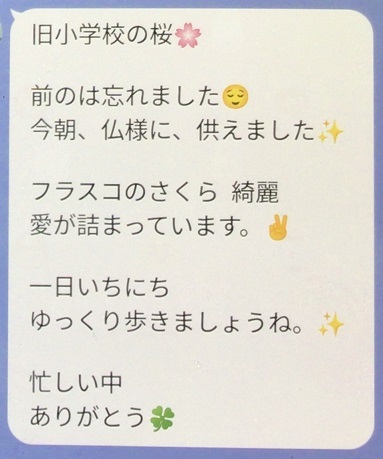 旧小学校の桜🌸
前のは忘れました😌
今朝、仏様に、供えました✨
フラスコのさくら 綺麗
愛が詰まっています。✌️
一日いちにち
ゆっくり歩きましょうね。✨
忙しい中
ありがとう🍀